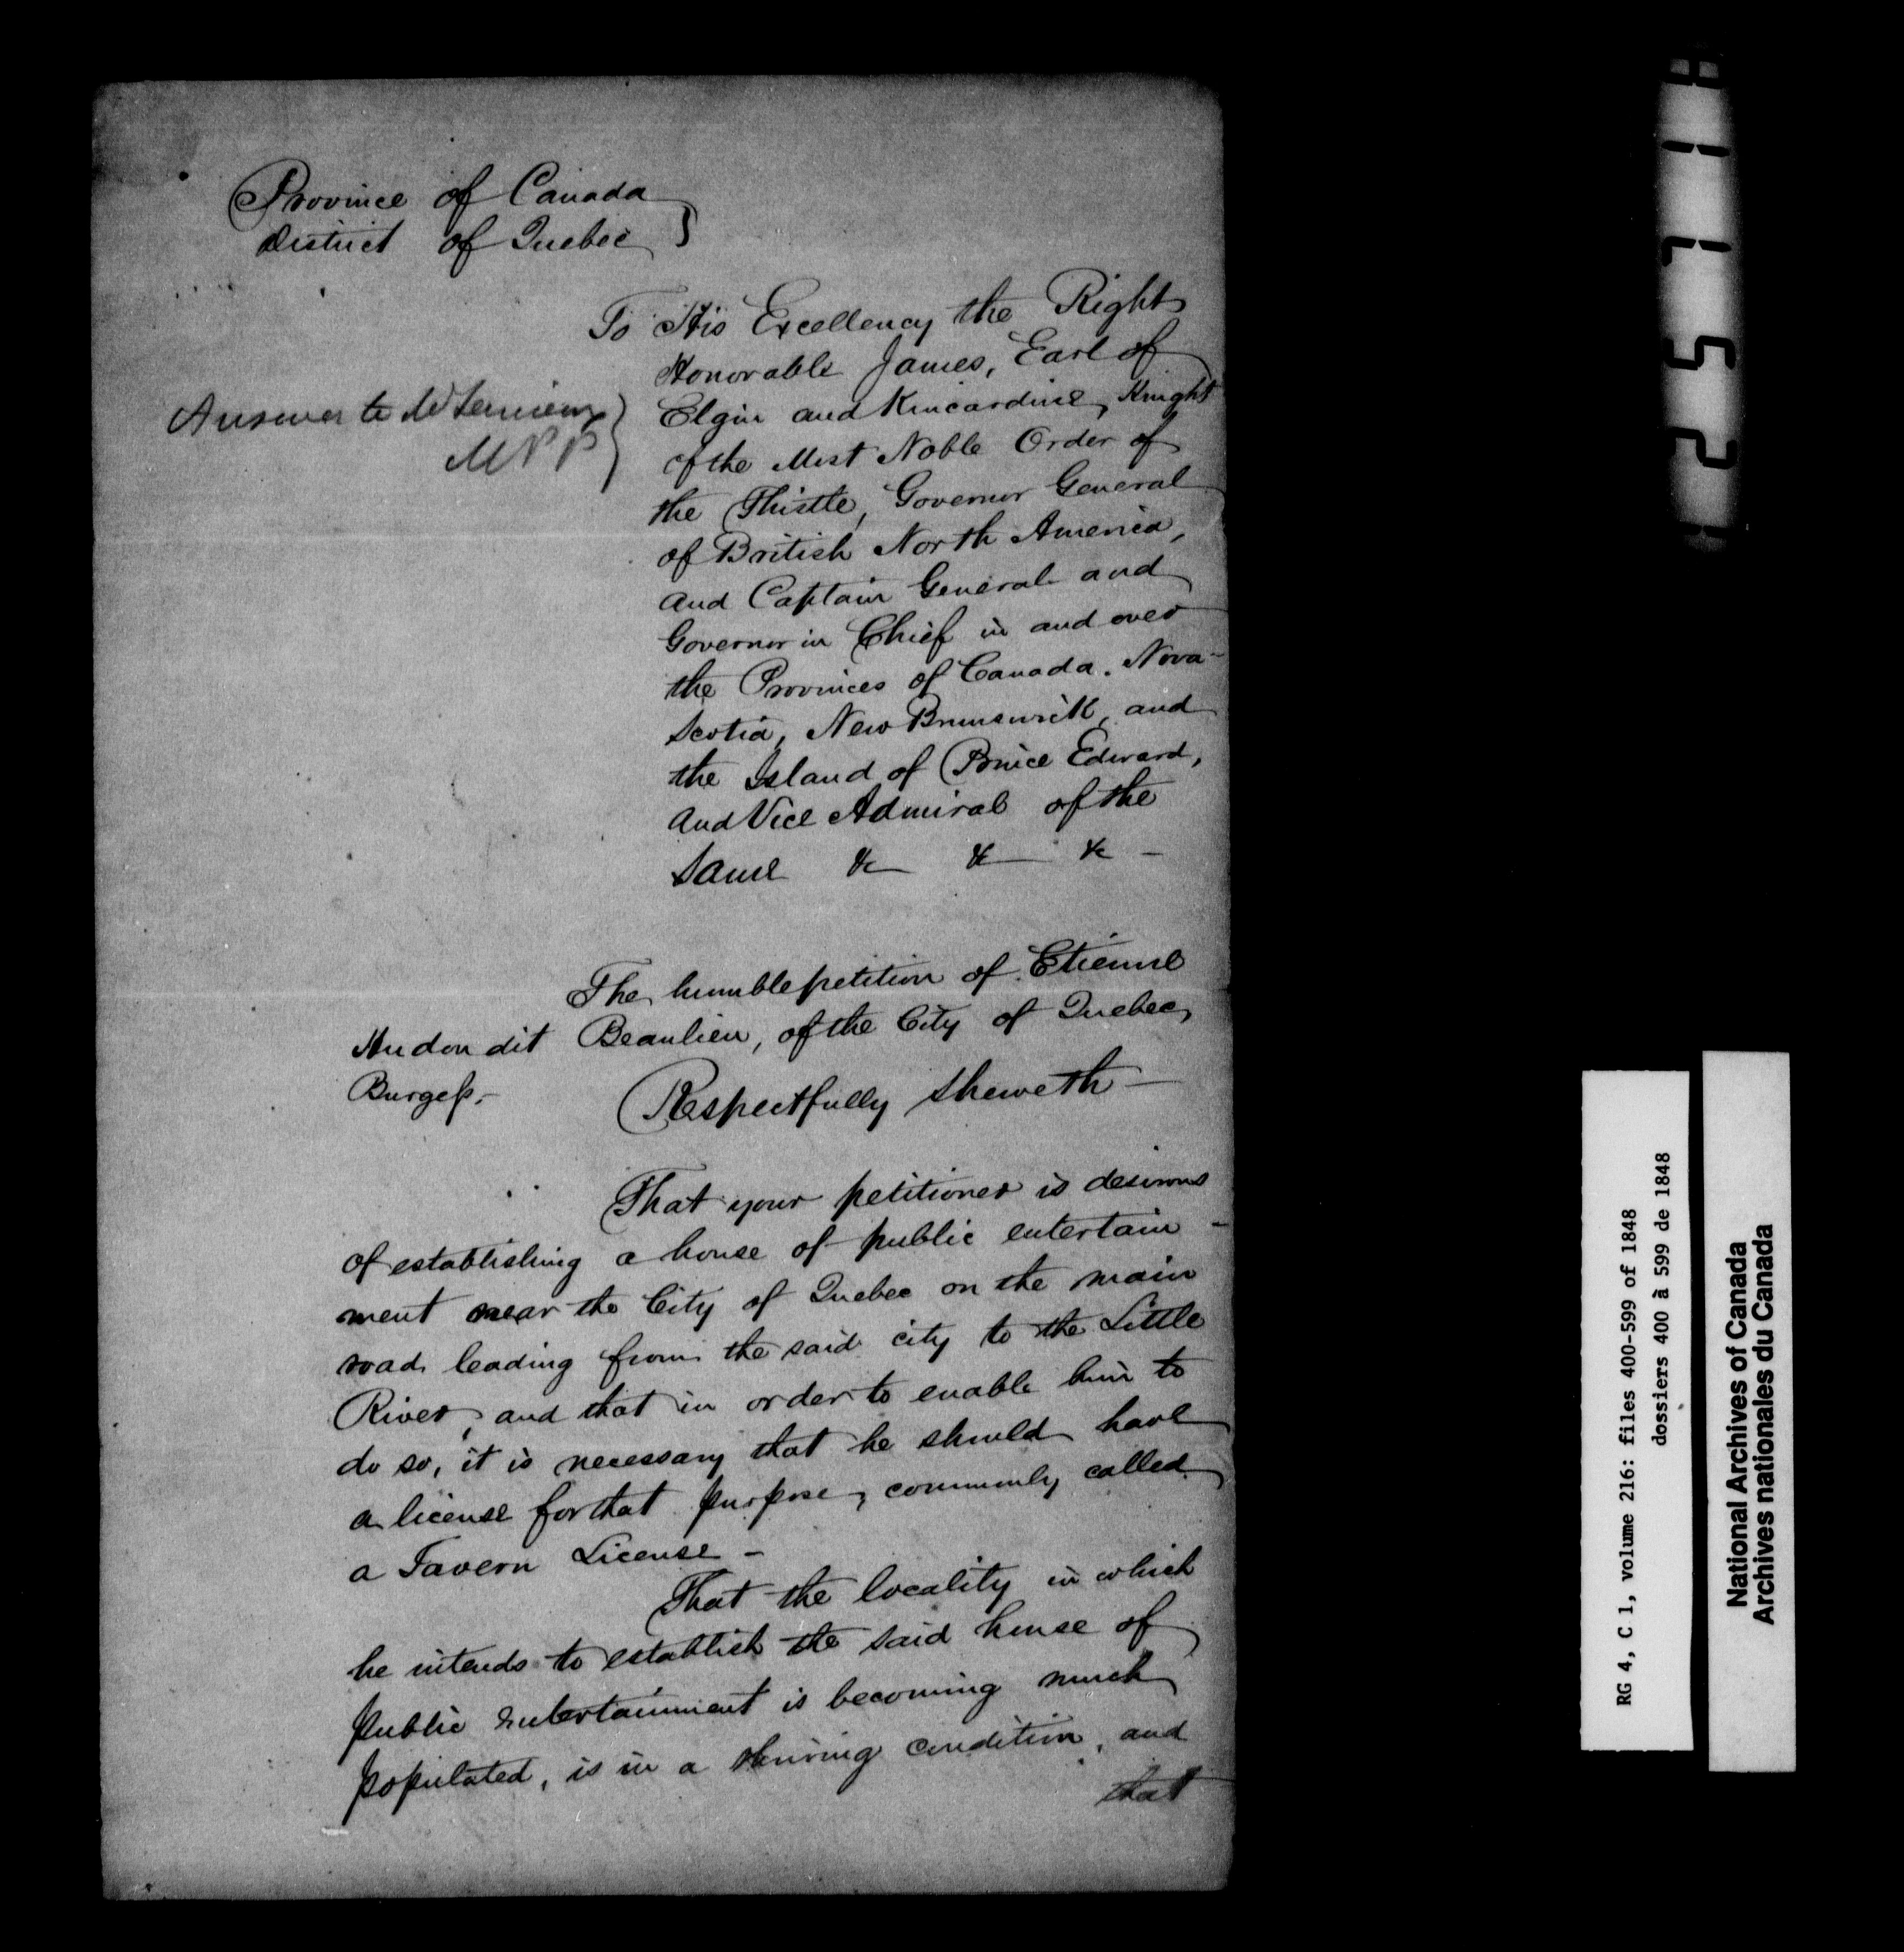 Province of Canada
District of Quebec }
To His Excellency the Right
Honorable James, Earl of
Elgin and Kincardine, Knight
of the Most Noble Order of
the Thistle, Governor General
of British North America,
and Captain General and
Governor in Chief in and over
the Provinces of Canada, Nova-
Scotia, New Brunswick, and
the Island of Prince Edward,
and Vice Admiral of the
Same &c &c &c -
Answer to
MPP }
The humble petition of Etienne
Hudon dit Beaulieu, of the City of Quebec,
Burgess.-
Respectfully sheweth-
That your petitioner is desirous
of establishing a house of public entertain-
ment near the City of Quebec on the main
road leading from the said city to the Little
River, and that in order to enable him to
do so, it is necessary that he should have
a license for that purpose, commonly called
a Tavern License -
That the locality in which
he intends to establish the said house of
public entertainment is becoming much
populated, is in a thriving condition, and
that
11752
RG 4, C 1, volume 216: files 400-599 of 1848
dossiers 400 à 599 de 1848
National Archives of Canada
Archives nationales du Canada